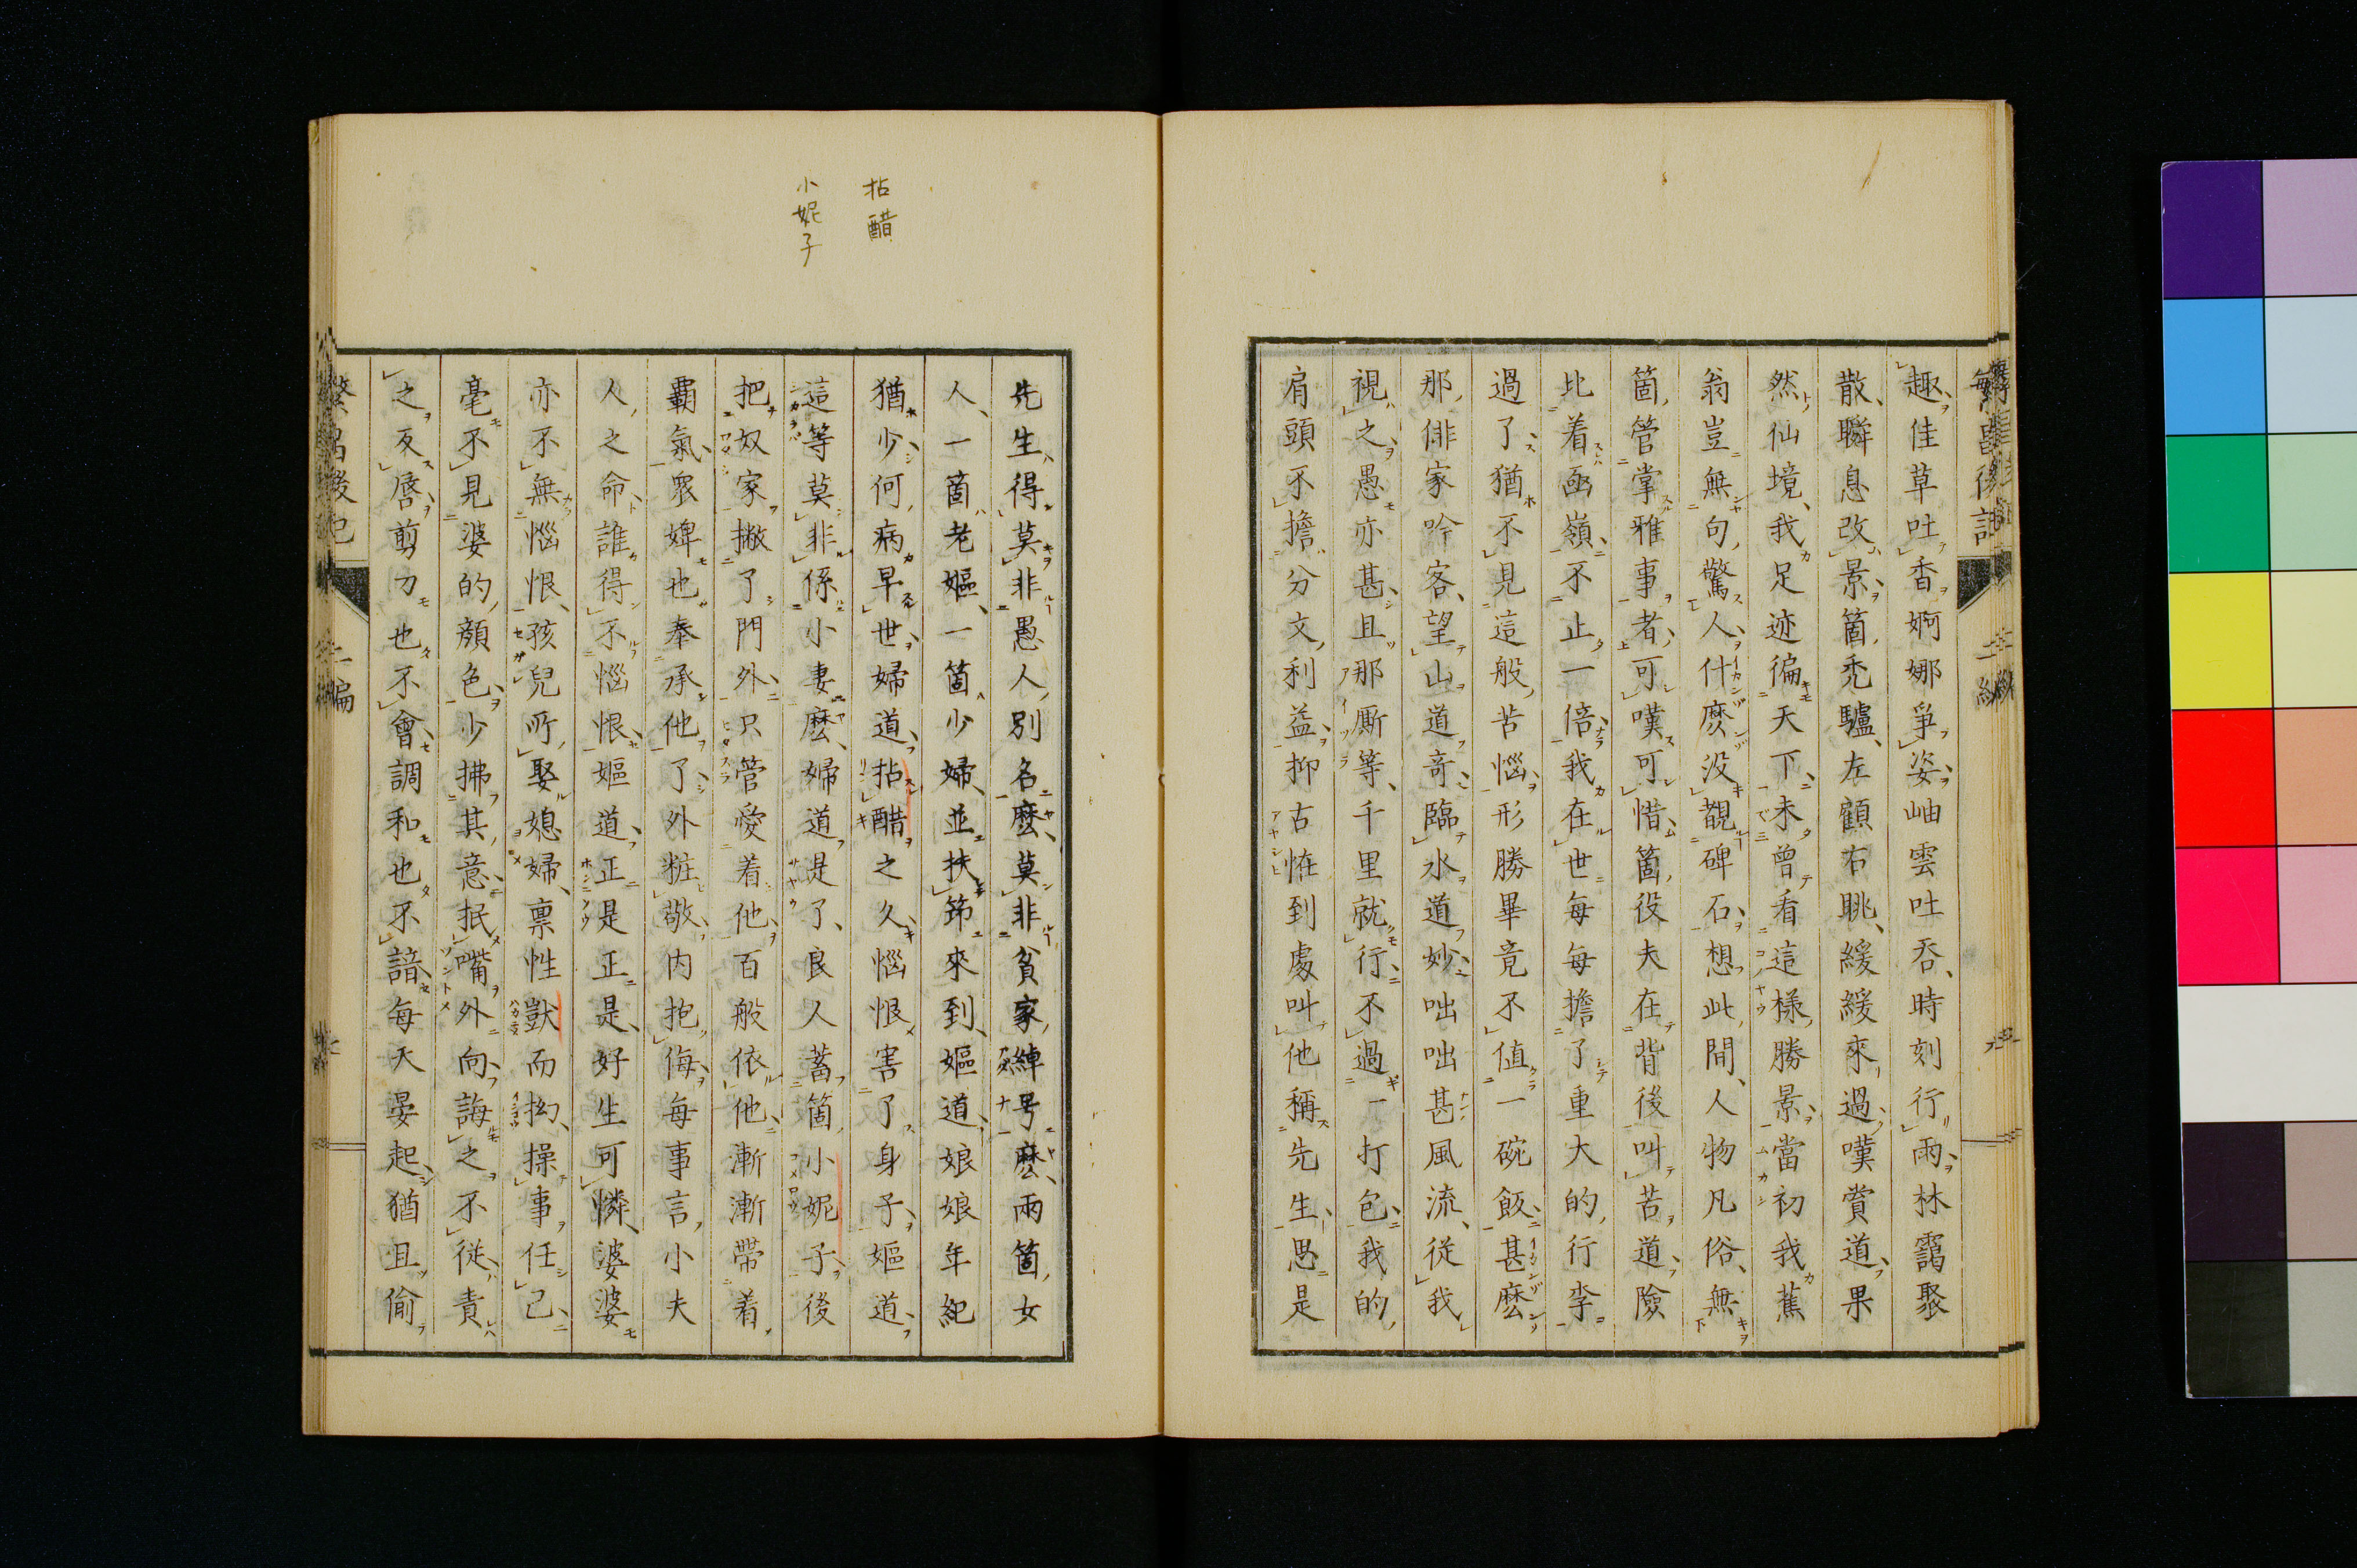 趣佳草吐香婀娜爭姿岫雲吐吞時刻行雨林靄聚
散瞬息改景箇禿驢左顧右眺緩緩來過嘆賞道果
然仙境我足迹徧天下未曾看這樣勝景當初我蕉
翁豈無句驚人什麽没覩碑石想此間人物凡俗無
箇管掌雅事者可嘆可惜箇役夫在背後叫苦道險
比着凾嶺不止一倍我在世每每擔了重大的行李
過了猶不見這般苦惱形勝畢竟不値一碗飯甚麽
那俳家吟客望山道奇臨水道妙咄咄甚風流從我
視之愚亦甚且那厮等千里就行不過一打包我的
肩頭不擔分文利益抑古怪到處叫他稱先生思是
拈醋
小妮子
先生得莫非愚人別名麽莫非貧家綽号麽兩箇女
人一箇老嫗一箇少婦並扶節來到嫗道娘娘年紀
猶少何病早世婦道拈醋之久惱恨害了身子嫗道
這等莫非係小妻麽婦道是了良人蓄箇小妮子後
把奴家撇了門外只管愛着他百般依他漸漸帶着
覇氣衆婢也奉承他了外粧敬内抱侮每事言小夫
人之命誰得不惱恨嫗道正是正是好生可憐婆婆
亦不無惱恨孩兒所娶媳婦禀性獃而拗操事任己
毫不見婆的顔色少拂其意抿嘴外向誨之不從責
之反唇剪刀也不會調和也不諳每天晏起猶且偷